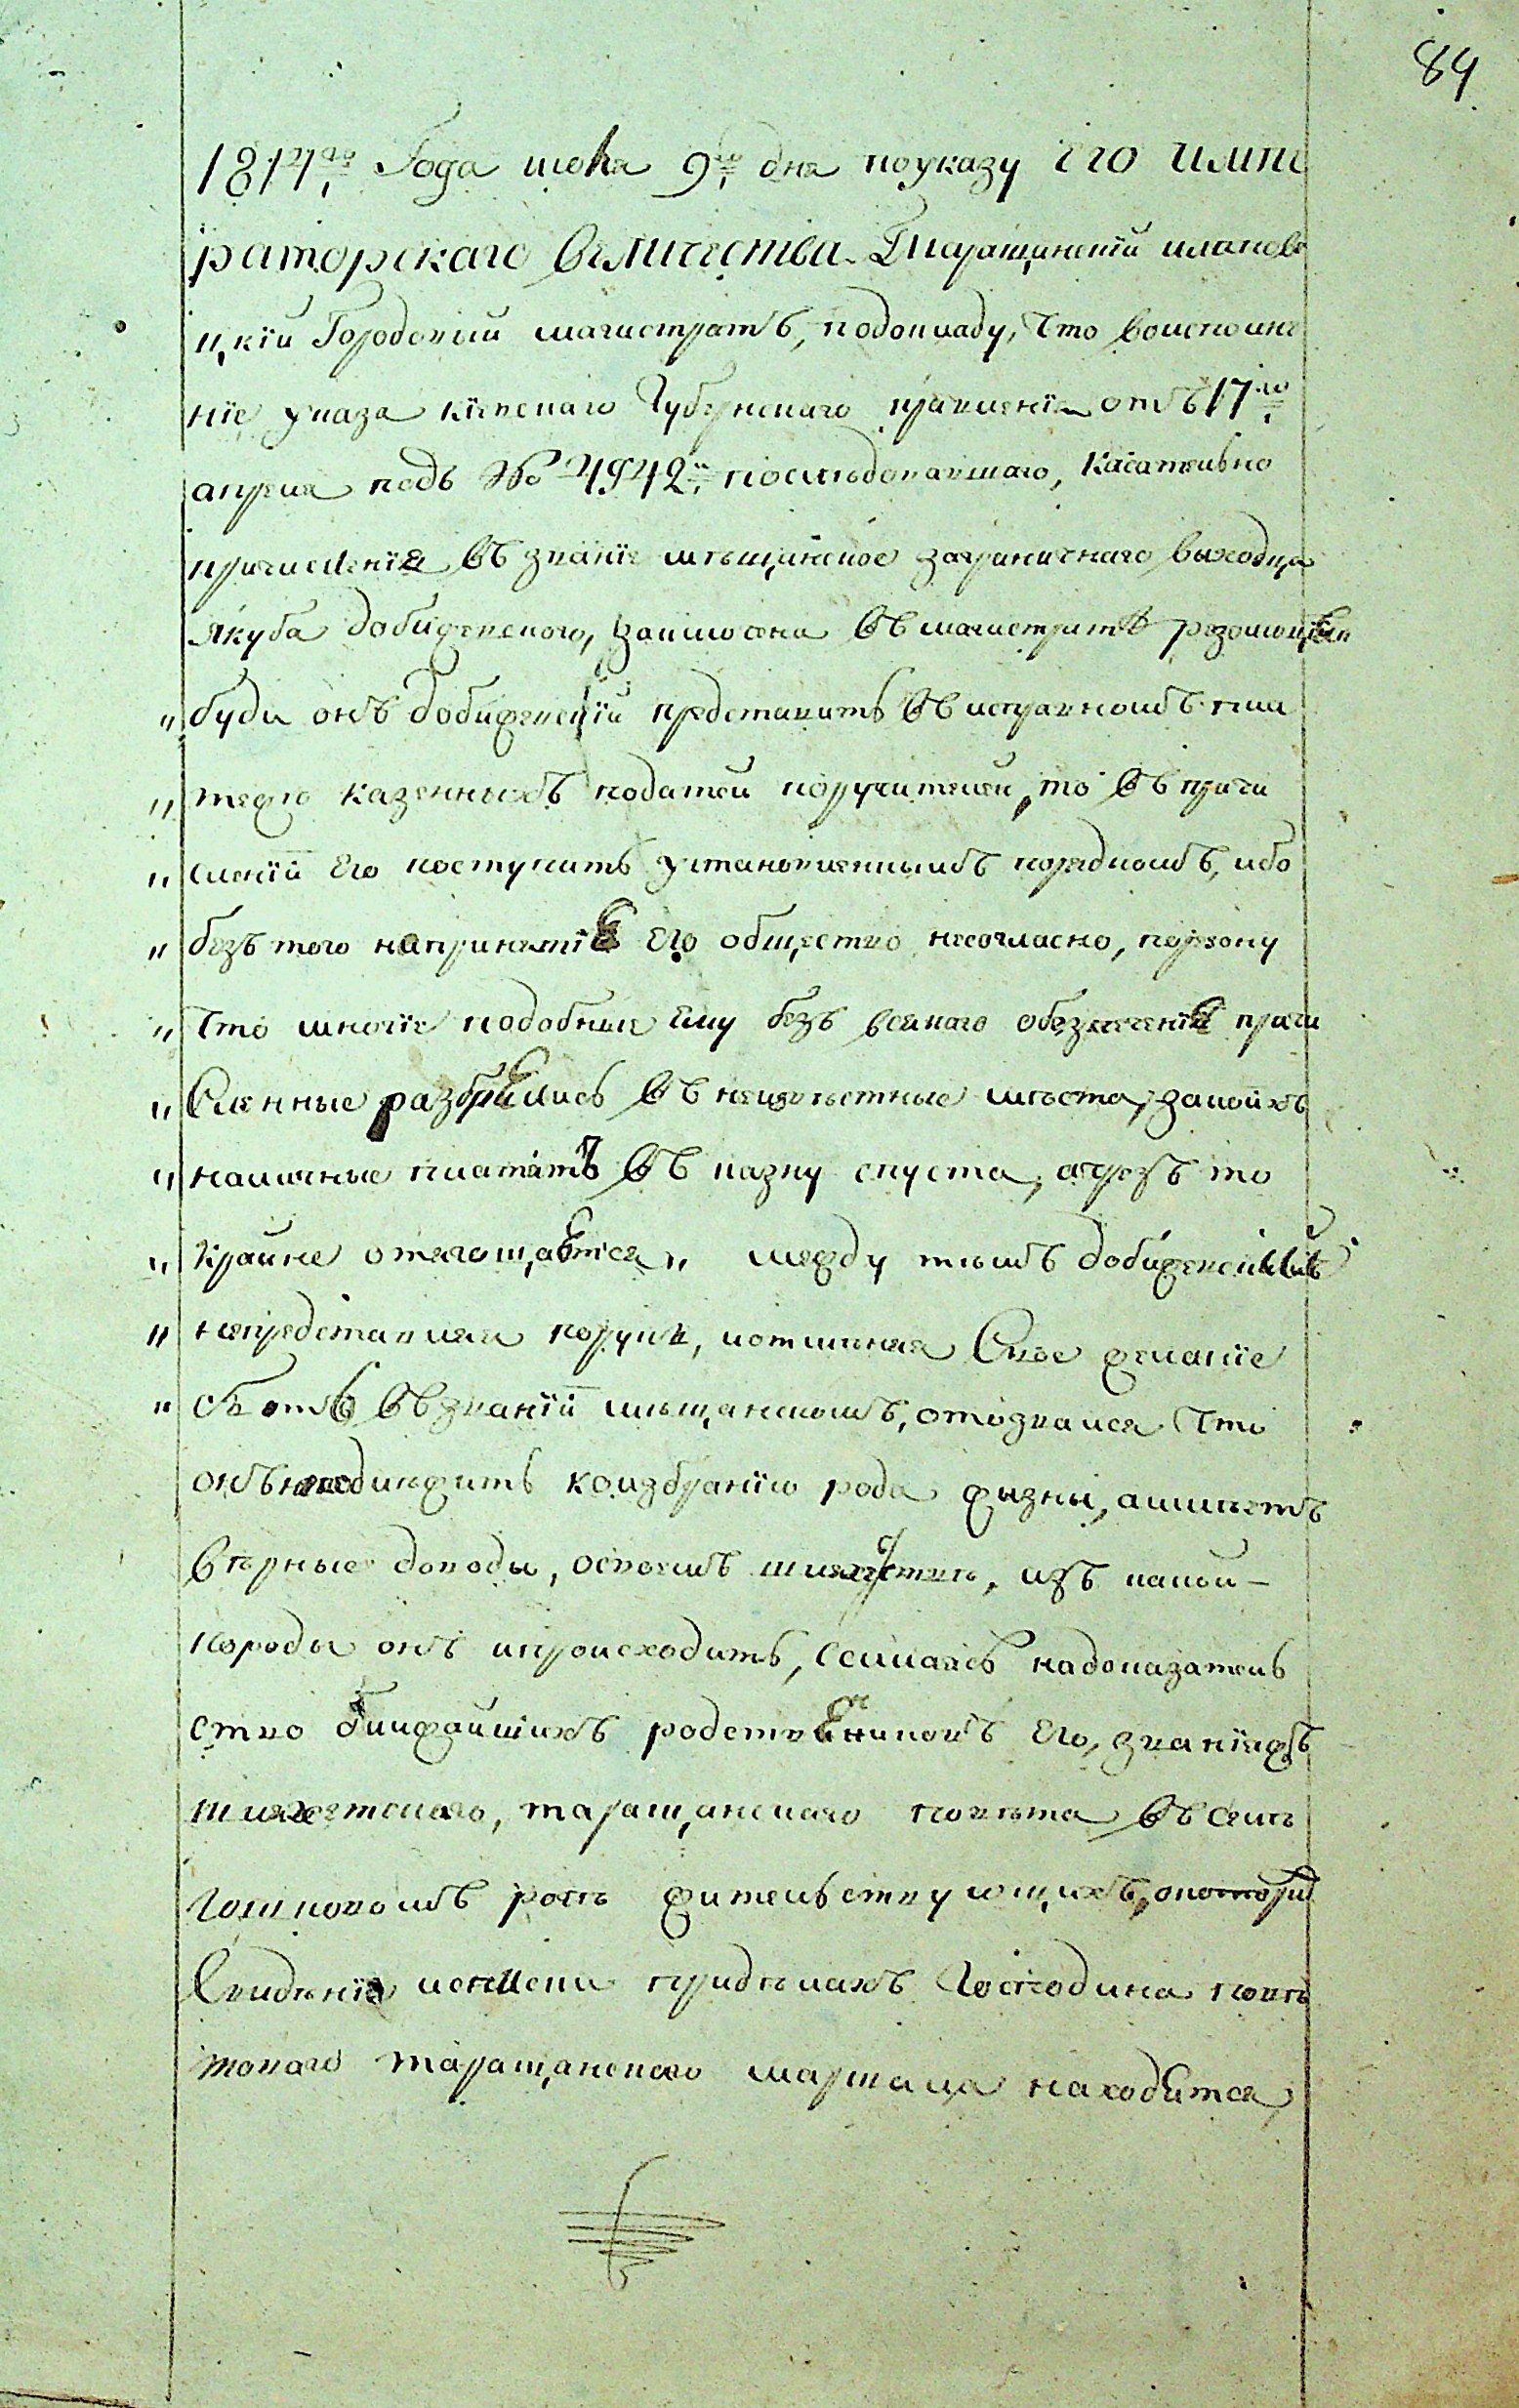 84
1814го Года июня 9го дня по указу Его импе
раторскаго величества. Таращанский иланов
цкій Городовый магистратъ, подокладу, Что воисполне
ніе указа кіевскаго Губернскаго правленія отъ 17го
апреля подъ № 4942м последовавшаго, касательно
причисленія въ званіе мѣщанское заграничнаго выходца
якуба добижевского, заключена въ магистратѣ резолюція
„ буди онъ добижевскій представитъ въ исправномъ пла
„ теже казенныхъ податей поручителей, то въ причи
„ сленіи его поступить установленнымъ порядкомъ, ибо
„ безъ того напринятіе Его общество несогласно, порезону
„ Что многіе подобные Ему безъ всякаго обезпеченія причи
„ Сленные разбрелись въ неизвѣстные мѣста, закоихъ
„ наличные платятъ въ казну спуста, ачрезъ то
„ Крайне отягощается „ между тѣмъ добижевскій
„ непредставляя порукъ, иотмѣняя Свое желаніе
„ быть въ званіи мѣщанскомъ, отозвался Что
онъ короди жизни, аимѣетъ
вѣрные доводы, освоемъ шляхетствѣ, изъ какой-
породы онъ ипроисходитъ, Ссылаясь надоказатель
ство ближайшихъ родственниковъ его, званіяжъ
шляхетскаго, таращанскаго повѣта въ селѣ
жительствующихъ, окоторы
Свидѣнія придѣлахъ Господина повѣ
товаго таращанского маршала находится,